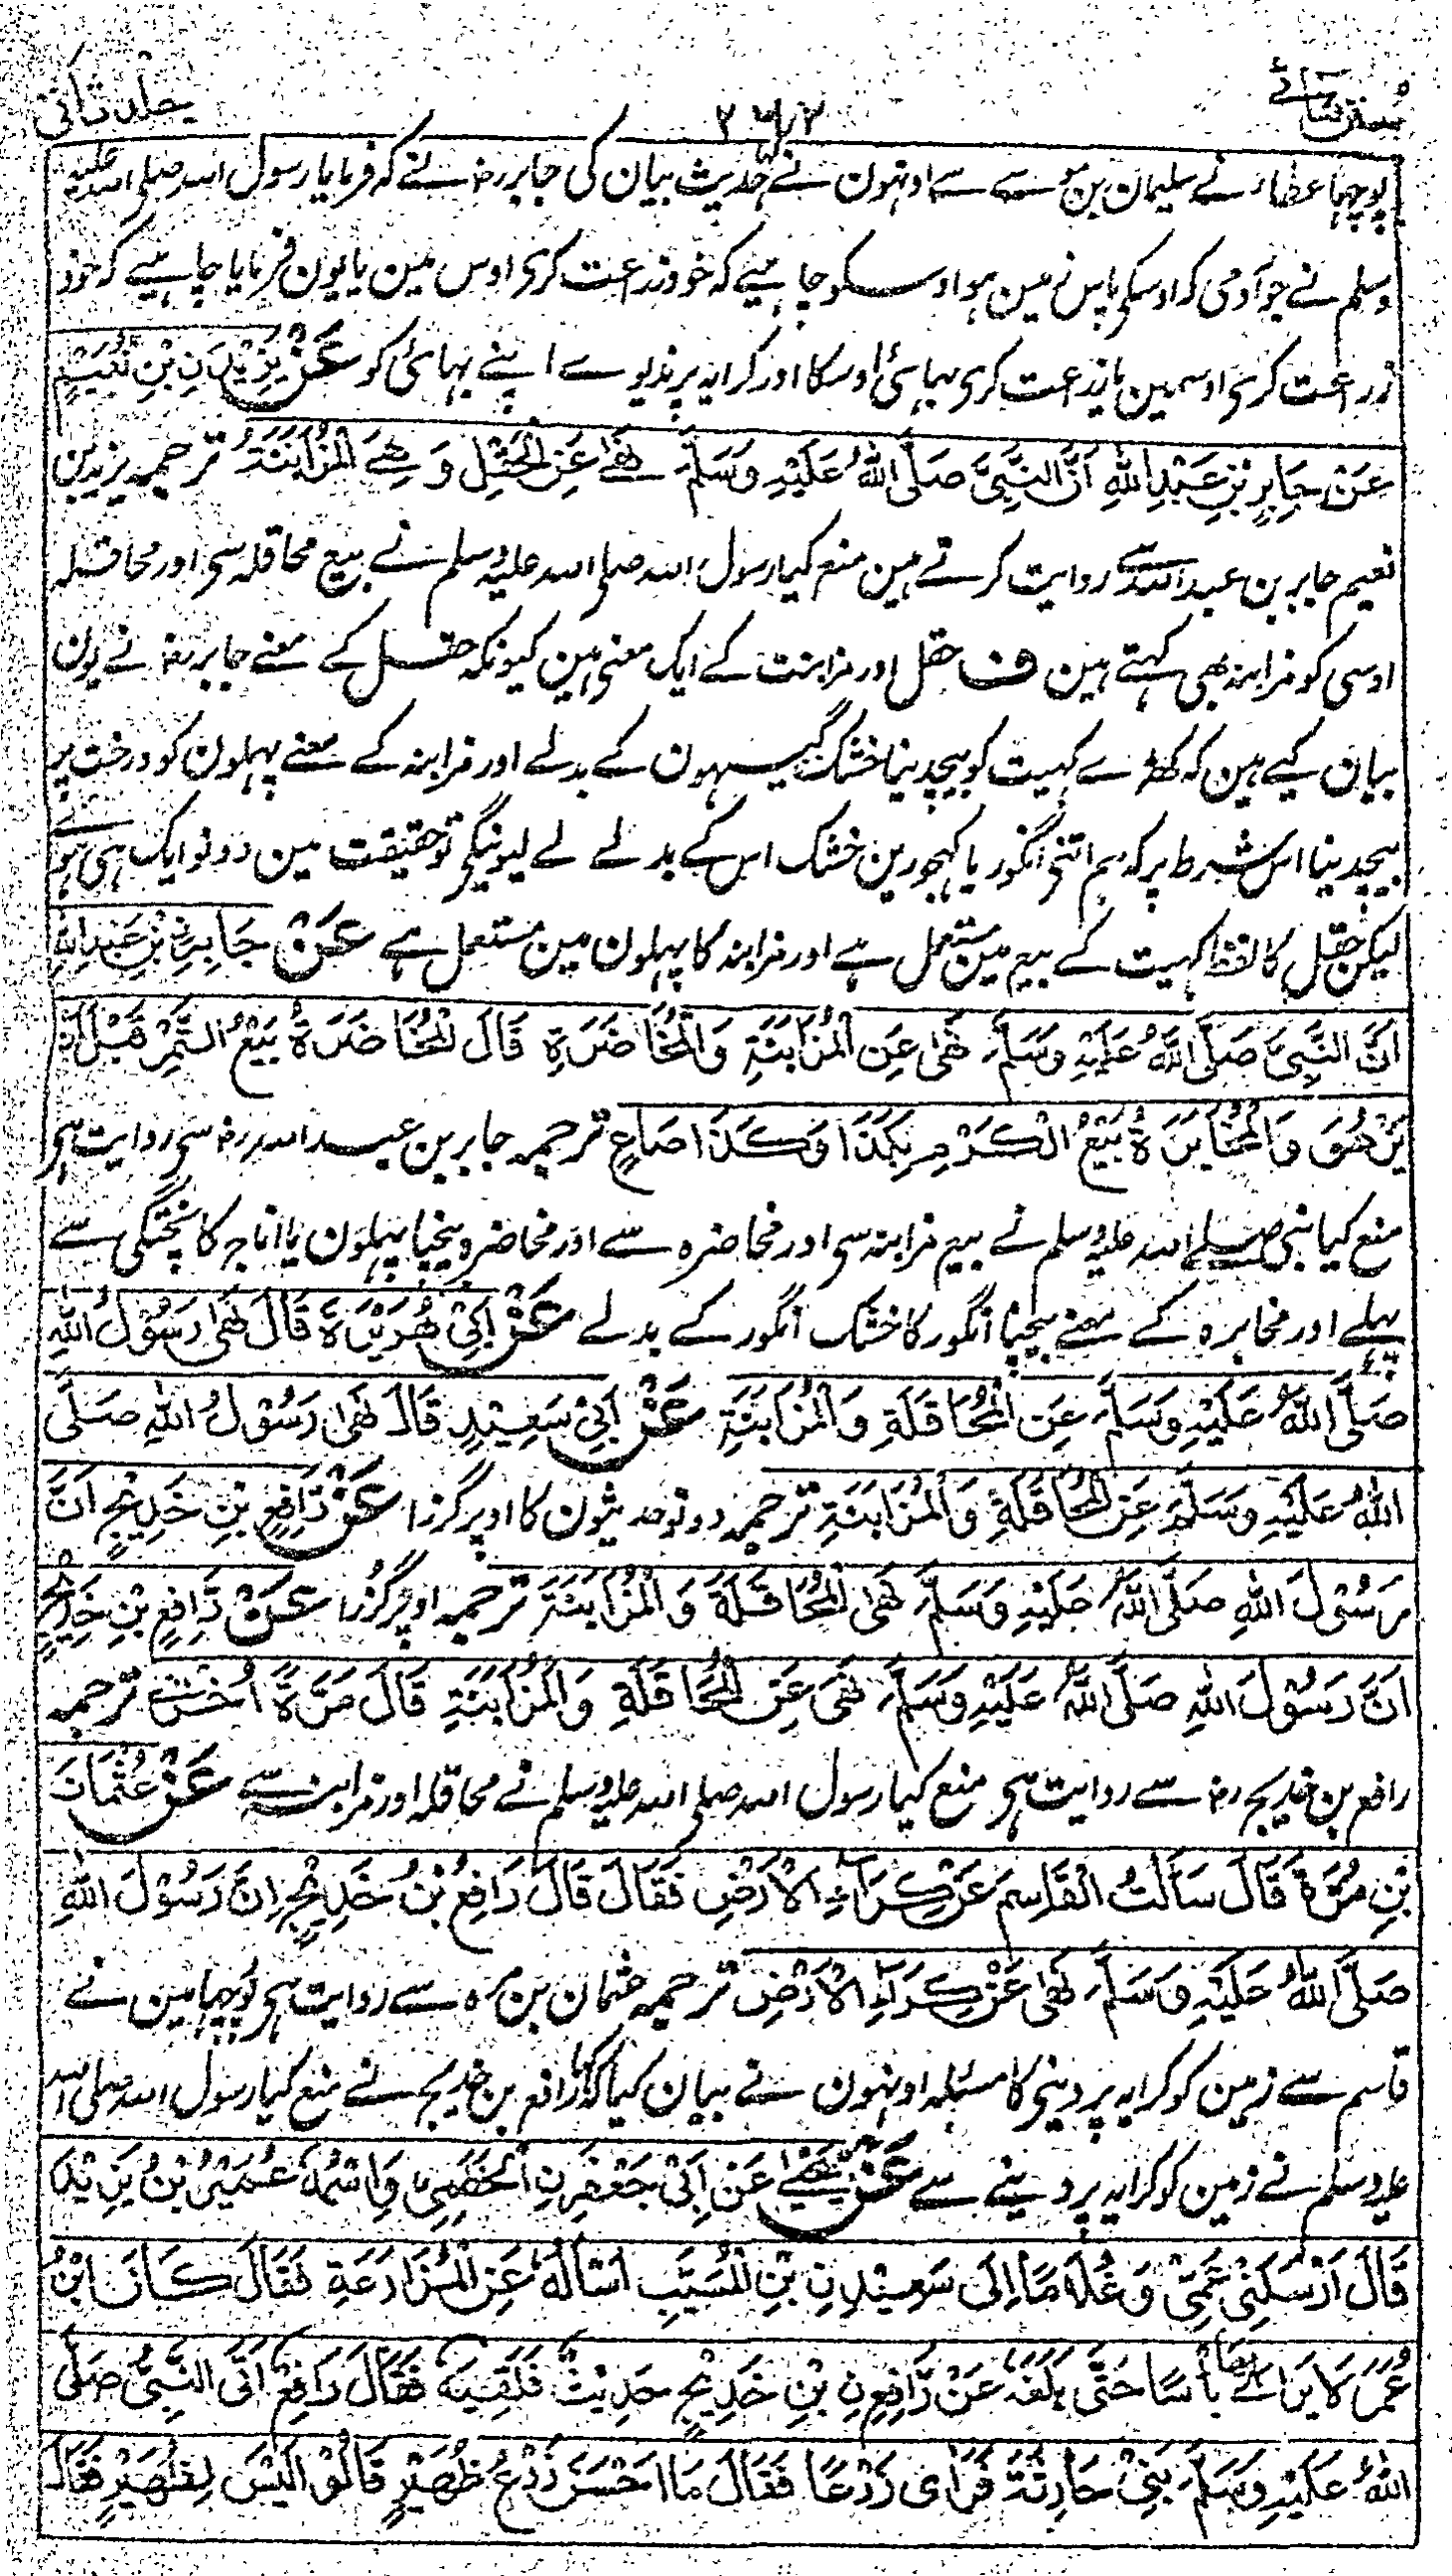 سنن نسائے
جلد ثانی
پوچھا عطاء نے سلیمان بن موسے سے اونہون نے کہا حدیث بیان کی جابر رضہ نے کہ فرمایا رسول اللہ صلی اللہ علیہ
وسلم نے جو آدمی کہ اوسکی پاس زمین ہو اوسکو چاہیے کہ خود زراعت کری اوس مین یا یون فرمایا چاہیے کہ خود
زراعت کری اوسمین یا زراعت کری بہائی اوسکا اور کرایہ پر ندیوے اپنے بہائی کو عَنْ يَزِيْدَ بْنِ نُعَيْمٍ
عَنْ جَابِرِ بْنِ عَبْدِ اللّٰهِ اَنَّ النَّبِيَّ صَلَّى اللّٰهُ عَلَيْهِ وَسَلَّمَ نَهٰى عَنِ الْحَقْلِ وَهِيَ الْمُزَابَنَةُ ترجمہ یزید بن
نعیم جابر بن عبد اللہ سے روایت کرتے ہین منع کیا رسول اللہ صلی اللہ علیہ وسلم نے بیع محاقلہ سی اور محاقلہ
اوسی کو مزابنہ بھی کہتے ہین ف حقل اور مزابنت کے ایک معنی ہین کیونکہ حقل کے معنے جابر رضہ نے یون
بیان کیے ہین کہ کھڑے کہیت کو بیچدینا خشک گیہون کے بدلے اور مزابنہ کے معنے پہلون کو درخت پر
بیچدینا اس شرط پر کہ ہم اتنی انگور یا کہجورین خشک اس کے بدلے لے لیونیگی تو حقیقت مین دونو ایک ہی ہوے
لیکن حقل کا لفظ کہیت کے بیع مین مستعمل ہے اور مزابنہ کا پہلون مین مستعمل ہے عَنْ جَابِرِ بْنِ عَبْدِ اللّٰهِ
اَنَّ النَّبِيَّ صَلَّى اللّٰهُ عَلَيْهِ وَسَلَّمَ نَهٰى عَنِ الْمُزَابَنَةِ وَالْمُخَاضَرَةِ قَالَ الْمُخَاضَرَةُ بَيْعُ الثَّمَرِ قَبْلَ اَنْ
يَزْهُوَ وَالْمُخَابَرَةُ بَيْعُ الْكَرْمِ بِكَذَا وَكَذَا صَاعٍ ترجمہ جابر بن عبد اللہ رضہ سی روایت ہی
منع کیا نبی صلے اللہ علیہ وسلم نے بیع مزابنہ سی اور مخاضرہ سے اور مخاضرہ بیچنا پہلون یا اناج کا پختگی سے
پہلے اور مخابرہ کے معنے بیچنا انگور کا خشک انگور کے بدلے عَنْ اَبِيْ هُرَيْرَةَ قَالَ نَهٰى رَسُوْلُ اللّٰهِ
صَلَّى اللّٰهُ عَلَيْهِ وَسَلَّمَ عَنِ الْمُحَاقَلَةِ وَالْمُزَابَنَةِ عَنْ اَبِيْ سَعِيْدٍ قَالَ نَهٰى رَسُوْلُ اللّٰهِ صَلَّى
اللّٰهُ عَلَيْهِ وَسَلَّمَ عَنِ الْمُحَاقَلَةِ وَالْمُزَابَنَةِ ترجمہ دونو حدیثون کا اوپر گزرا عَنْ رَافِعِ بْنِ خَدِيْجٍ اَنَّ
رَسُوْلَ اللّٰهِ صَلَّى اللّٰهُ عَلَيْهِ وَسَلَّمَ نَهٰى الْمُحَاقَلَةَ وَالْمُزَابَنَةَ ترجمہ اوپر گزرا عَنْ رَافِعِ بْنِ خَدِيْجٍ
اَنَّ رَسُوْلَ اللّٰهِ صَلَّى اللّٰهُ عَلَيْهِ وَسَلَّمَ نَهٰى عَنِ الْمُحَاقَلَةِ وَالْمُزَابَنَةِ قَالَ مَرَّةً اُخْرٰى ترجمہ
رافع بن خدیج رضہ سے روایت ہی منع کیا رسول اللہ صلی اللہ علیہ وسلم نے محاقلہ اور مزابنہ سے عَنْ عُثْمَانَ
بْنِ مُرَّةَ قَالَ سَاَلْتُ الْقَاسِمَ عَنْ كِرَاءِ الْاَرْضِ فَقَالَ قَالَ رَافِعُ بْنُ خَدِيْجٍ اِنَّ رَسُوْلَ اللّٰهِ
صَلَّى اللّٰهُ عَلَيْهِ وَسَلَّمَ نَهٰى عَنْ كِرَاءِ الْاَرْضِ ترجمہ عثمان بن مرہ سے روایت ہی پوچہا مین نے
قاسم سے زمین کو کرایہ پر دینی کا مسئلہ اونہون نے بیان کیا کہ کہا رافع بن خدیج نے منع کیا رسول اللہ صلی اللہ
علیہ وسلم نے زمین کو کرایہ پر دینے سے عَنْ يَحْيٰى عَنْ اَبِيْ جَعْفَرِنِ الْخَطْمِيِّ وَاسْمُهٗ عُمَيْرُ بْنُ يَزِيْدَ
قَالَ اَرْسَلَنِيْ عَمِّيْ وَغُلَامًا اِلٰى سَعِيْدِ بْنِ الْمُسَيَّبِ اَسْاَلُهٗ عَنِ الْمُزَارَعَةِ فَقَالَ كَانَ ابْنُ
عُمَرَ لَا يَرٰى بِهَا بَاْسًا حَتّٰى بَلَغَهٗ عَنْ رَافِعِ بْنِ خَدِيْجٍ حَدِيْثٌ فَلَقِيَهٗ فَقَالَ رَافِعٌ اَتَى النَّبِيُّ صَلَّى
اللّٰهُ عَلَيْهِ وَسَلَّمَ بَنِيْ حَارِثَةَ فَرَاٰى زَرْعًا فَقَالَ مَا اَحْسَنَ زَرْعَ ظُهَيْرٍ قَالُوْا لَيْسَ لِظُهَيْرٍ فَقَالَ